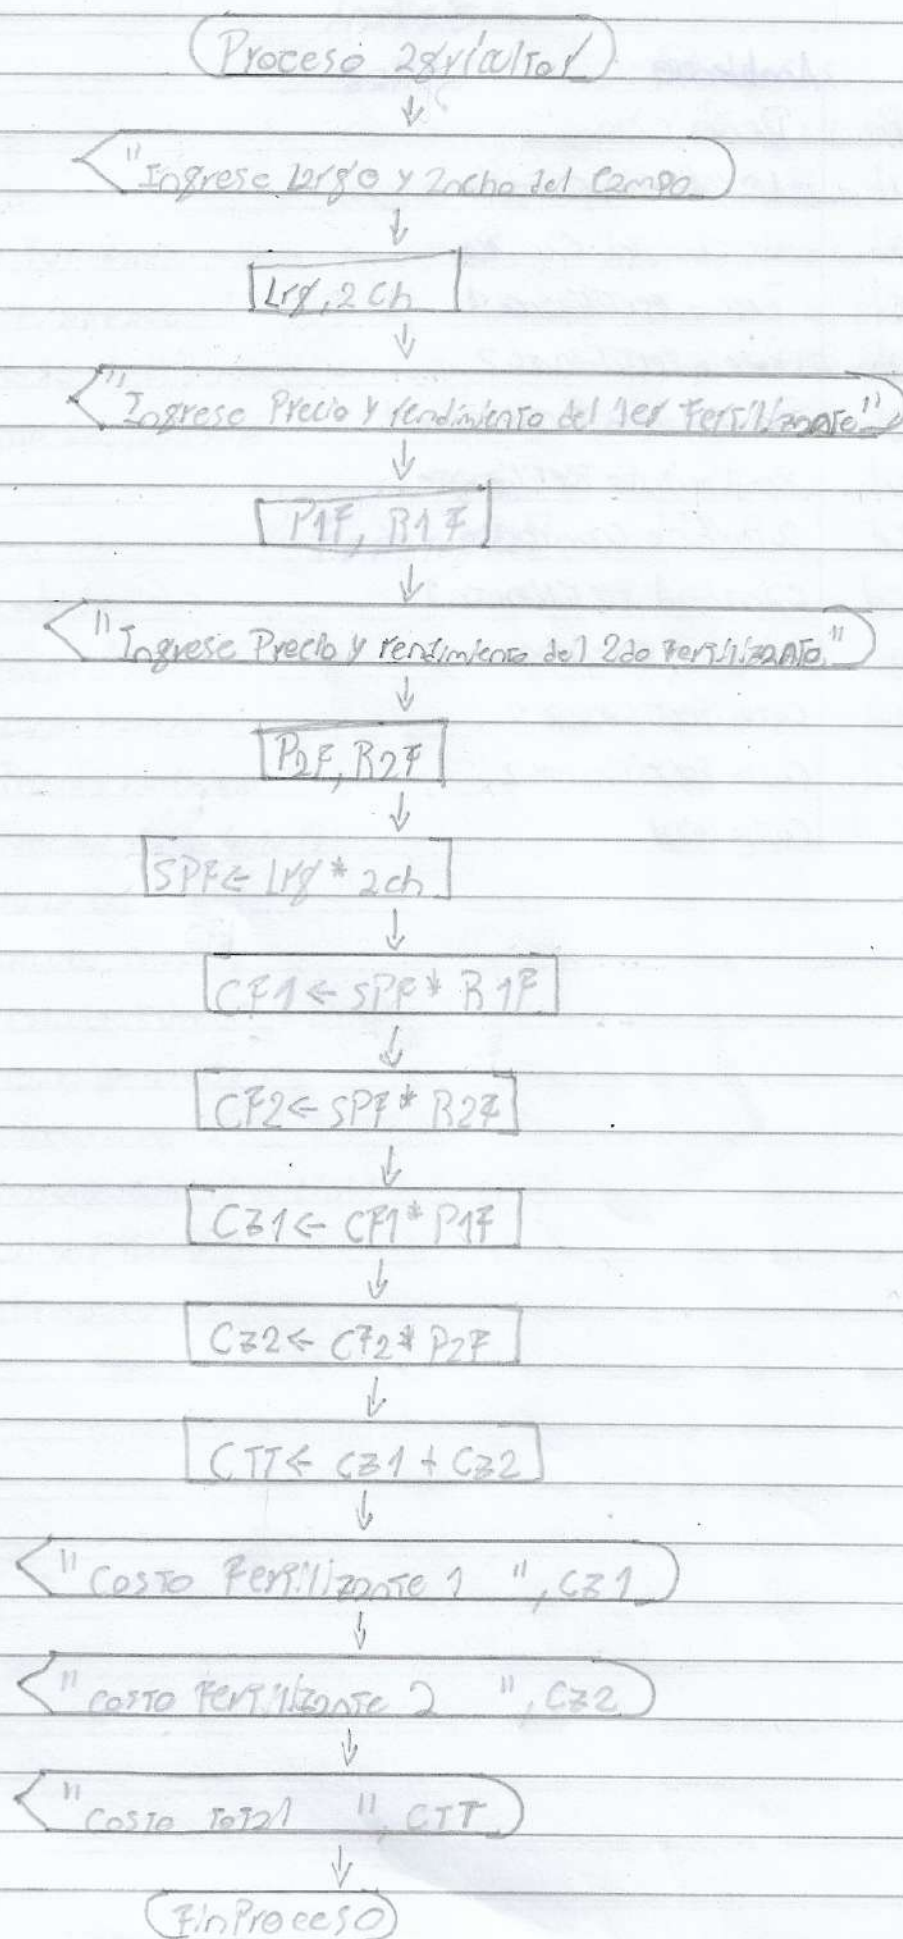 Proceso agricultor
"Ingrese largo y ancho del campo
Lrg, ach
"Ingrese Precio y rendimiento del 1er Fertilizante"
P1F, R1F
"Ingrese Precio y rendimiento del 2do Fertilizante"
P2F, R2F
SPF ← Lrg * ach
CF1 ← SPF * R1F
CF2 ← SPF * R2F
Cz1 ← CF1 * P1F
Cz2 ← CF2 * P2F
CTT ← cz1 + Cz2
"Costo Fertilizante 1 ", Cz1
"Costo Fertilizante 2 ", Cz2
"Costo Total ", CTT
FinProceso